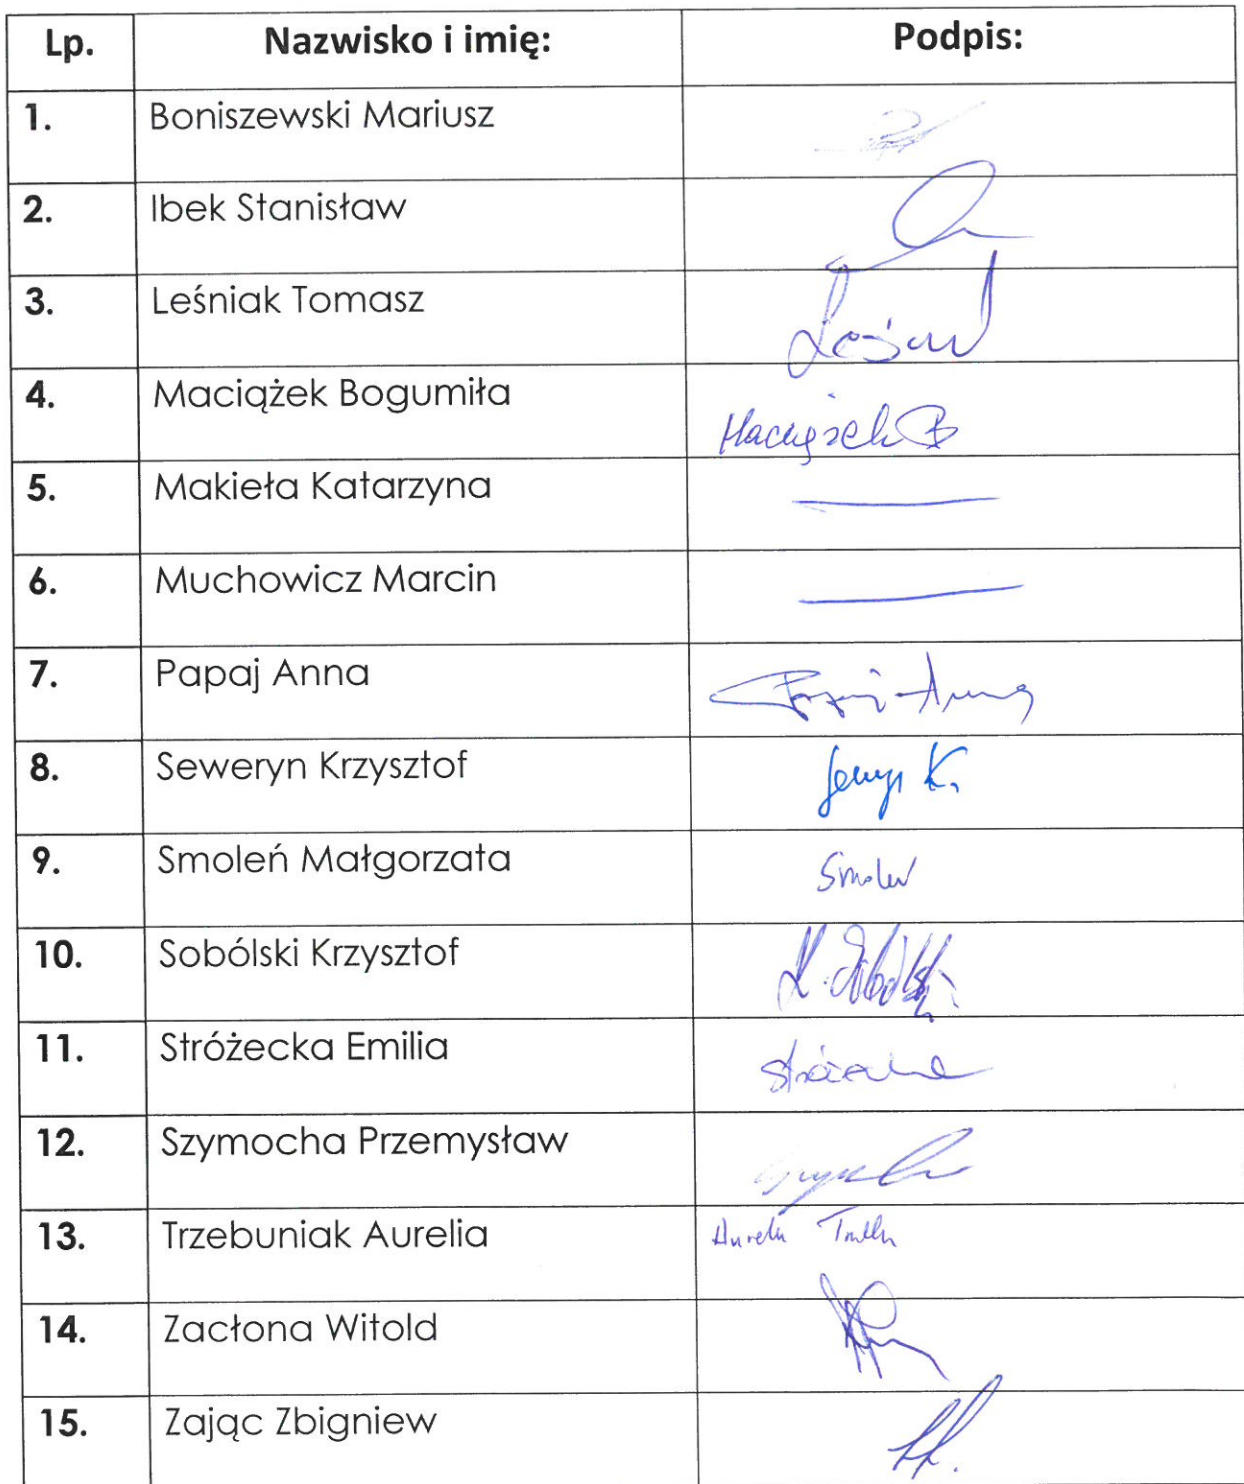 Lp. Nazwisko i imię: Podpis:
1. Boniszewski Mariusz
2. Ibek Stanisław
3. Leśniak Tomasz
4. Maciążek Bogumiła Maciążek B
5. Makieła Katarzyna
6. Muchowicz Marcin
7. Papaj Anna
8. Seweryn Krzysztof
9. Smoleń Małgorzata Smoleń
10. Sobólski Krzysztof K. Sobólski
11. Stróżecka Emilia
12. Szymocha Przemysław
13. Trzebuniak Aurelia Aurelia
14. Zacłona Witold
15. Zając Zbigniew